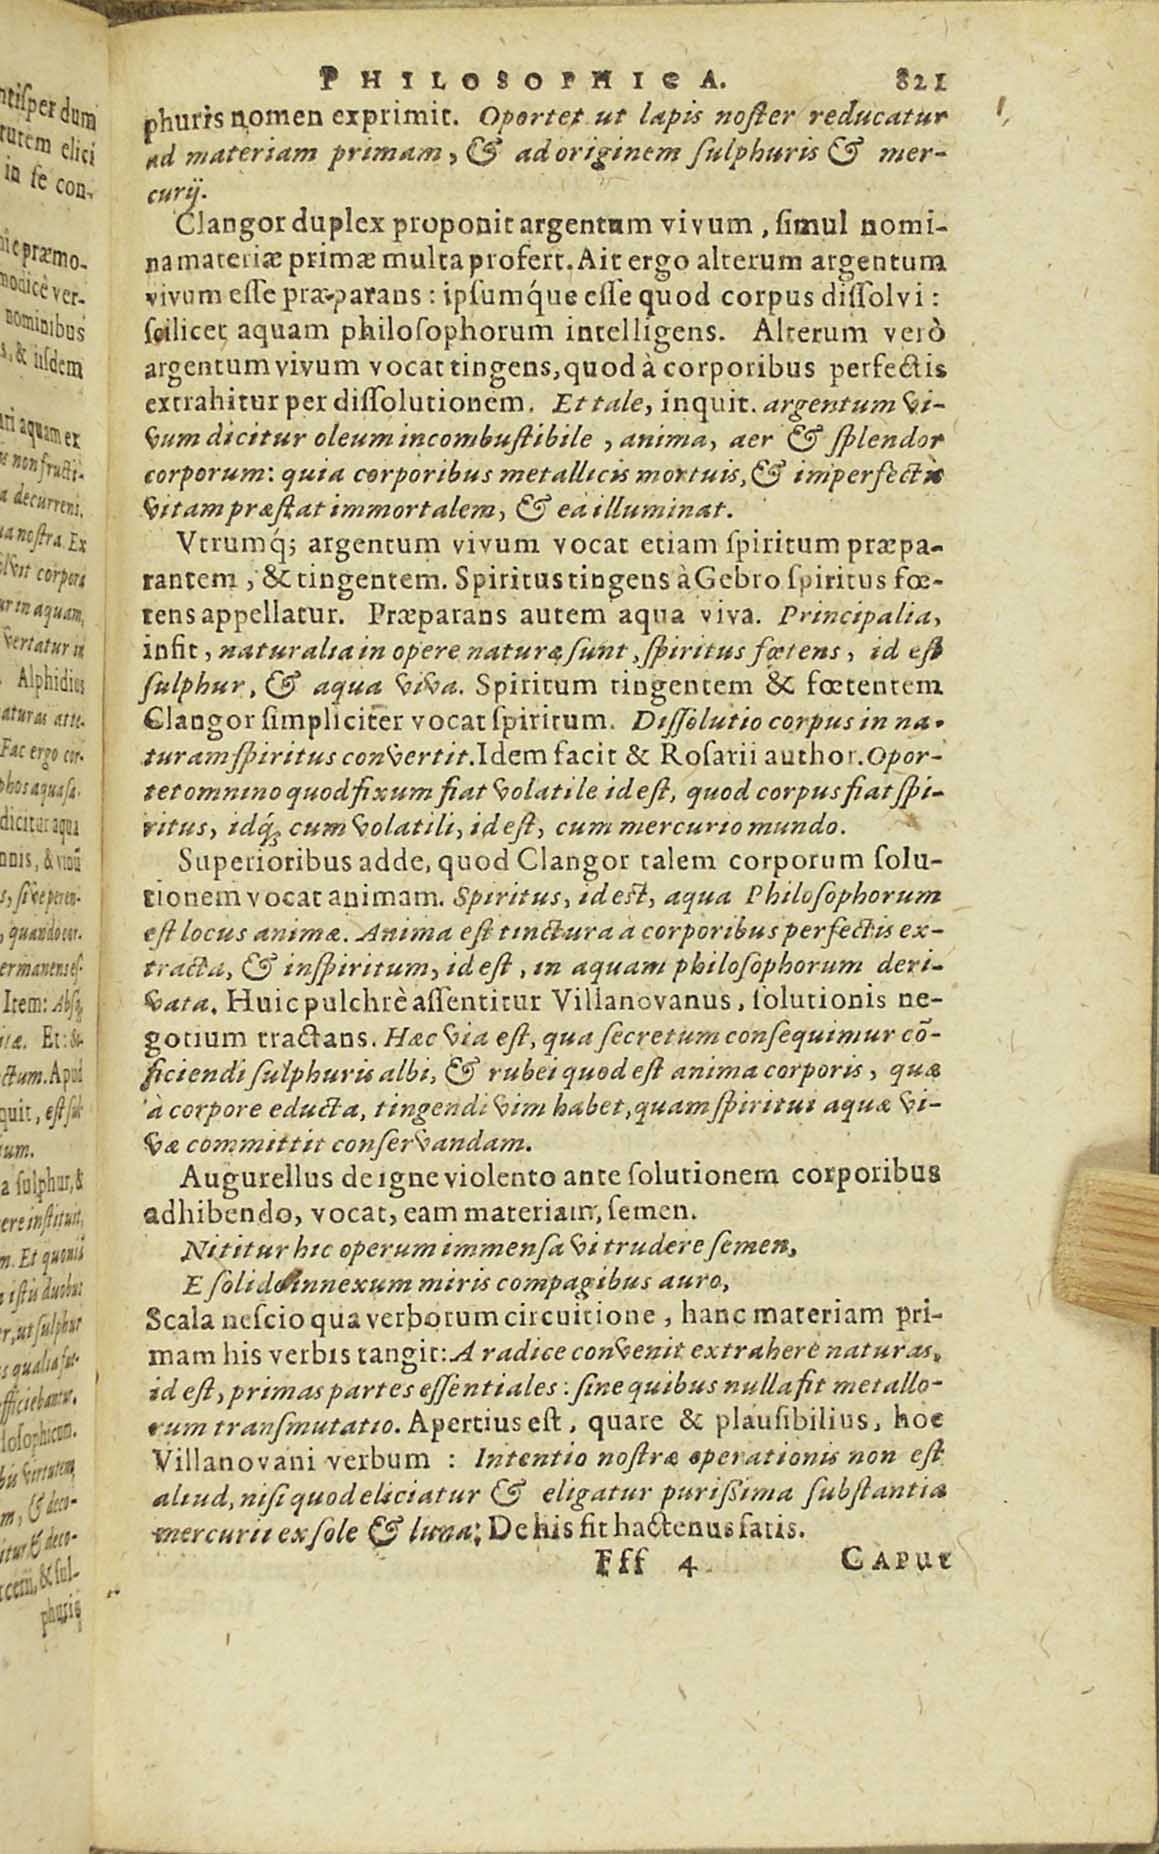 ntiſper dum
tutem elici
in ſe con-
præmo-
modicè ver-
nominibus
s, & iiſdem
ari aquam ex
non fructi-
a decurreni.
ua noſtra. Ex
olvit corpora
ur in aquam,
vertatur in
Alphidius
aturas atte-
Fac ergo cor-
phos aqua ſa-
dicitur aqua
nnis, & vinū
s, ſive peren-
, quando cor-
ermanens eſ-
Item: Abſq́;
itæ. Et: &
ctum. Apud
quit, eſt ſul-
ium.
a ſulphur, &
ere inſtituit,
m. Et quoniā
iſtis duobus
r, ut ſulphur
s qualia ſut-
efficiebantur.
loſophicum.
bis virtutem
m, & deco-
itur & deco-
rcem, & ſul-
phuris
PHILOSOPHICA. 821
phuris nomen exprimit. Oportet ut lapis noſter reducatur
ad materiam primam, & ad originem ſulphuris & mer-
curij.
Clangor duplex proponit argentum vivum, ſimul nomi-
na materiæ primæ multa profert. Ait ergo alterum argentum
vivum eſſe præparans: ipſumq́ue eſſe quod corpus diſſolvi:
ſcilicet aquam philoſophorum intelligens. Alterum verò
argentum vivum vocat tingens, quod à corporibus perfectis
extrahitur per diſſolutionem. Et tale, inquit. argentum vi-
vum dicitur oleum incombuſtibile, anima, aer & ſplendor
corporum: quia corporibus metallicis mortuis, & imperfectis
vitam præſtat immortalem, & ea illuminat.
Vtrumq́; argentum vivum vocat etiam ſpiritum præpa-
rantem, & tingentem. Spiritus tingens à Gebro ſpiritus fœ-
tens appellatur. Præparans autem aqua viva. Principalia,
infit, naturalia in opere naturæ ſunt, ſpiritus fœtens, id eſt
ſulphur, & aqua viva. Spiritum tingentem & fœtentem
Clangor ſimpliciter vocat ſpiritum. Diſſolutio corpus in na-
turam ſpiritus convertit. Idem facit & Roſarii author. Opor-
tet omnino quod fixum fiat volatile id eſt, quod corpus fiat ſpi-
ritus, idq́; cum volatili, id eſt, cum mercurio mundo.
Superioribus adde, quod Clangor talem corporum ſolu-
tionem vocat animam. Spiritus, id eſt, aqua Philoſophorum
eſt locus animæ. Anima eſt tinctura a corporibus perfectis ex-
tracta, & in ſpiritum, id eſt, in aquam philoſophorum deri-
vata. Huic pulchrè aſſentitur Villanovanus, ſolutionis ne-
gotium tractans. Hæc via eſt, qua ſecretum conſequimur cō-
ficiendi ſulphuris albi, & rubei quod eſt anima corporis, quæ
à corpore educta, tingendi vim habet, quam ſpiritui aquæ vi-
væ committit conſervandam.
Augurellus de igne violento ante ſolutionem corporibus
adhibendo, vocat, eam materiam, ſemen.
Nititur hic operum immenſa vi trudere ſemen,
E ſolido innexum miris compagibus auro,
Scala neſcio qua verborum circuitione, hanc materiam pri-
mam his verbis tangit: A radice convenit extrahere naturas,
id eſt, primas partes eſſentiales: ſine quibus nulla fit metallo-
rum tranſmutatio. Apertius eſt, quare & plauſibilius, hoc
Villanovani verbum: Intentio noſtræ operationis non eſt
aliud, niſi quod eliciatur & eligatur puriſſima ſubſtantia
mercurii ex ſole & luna; De his ſit hactenus ſatis.
Fff 4 CAPUT